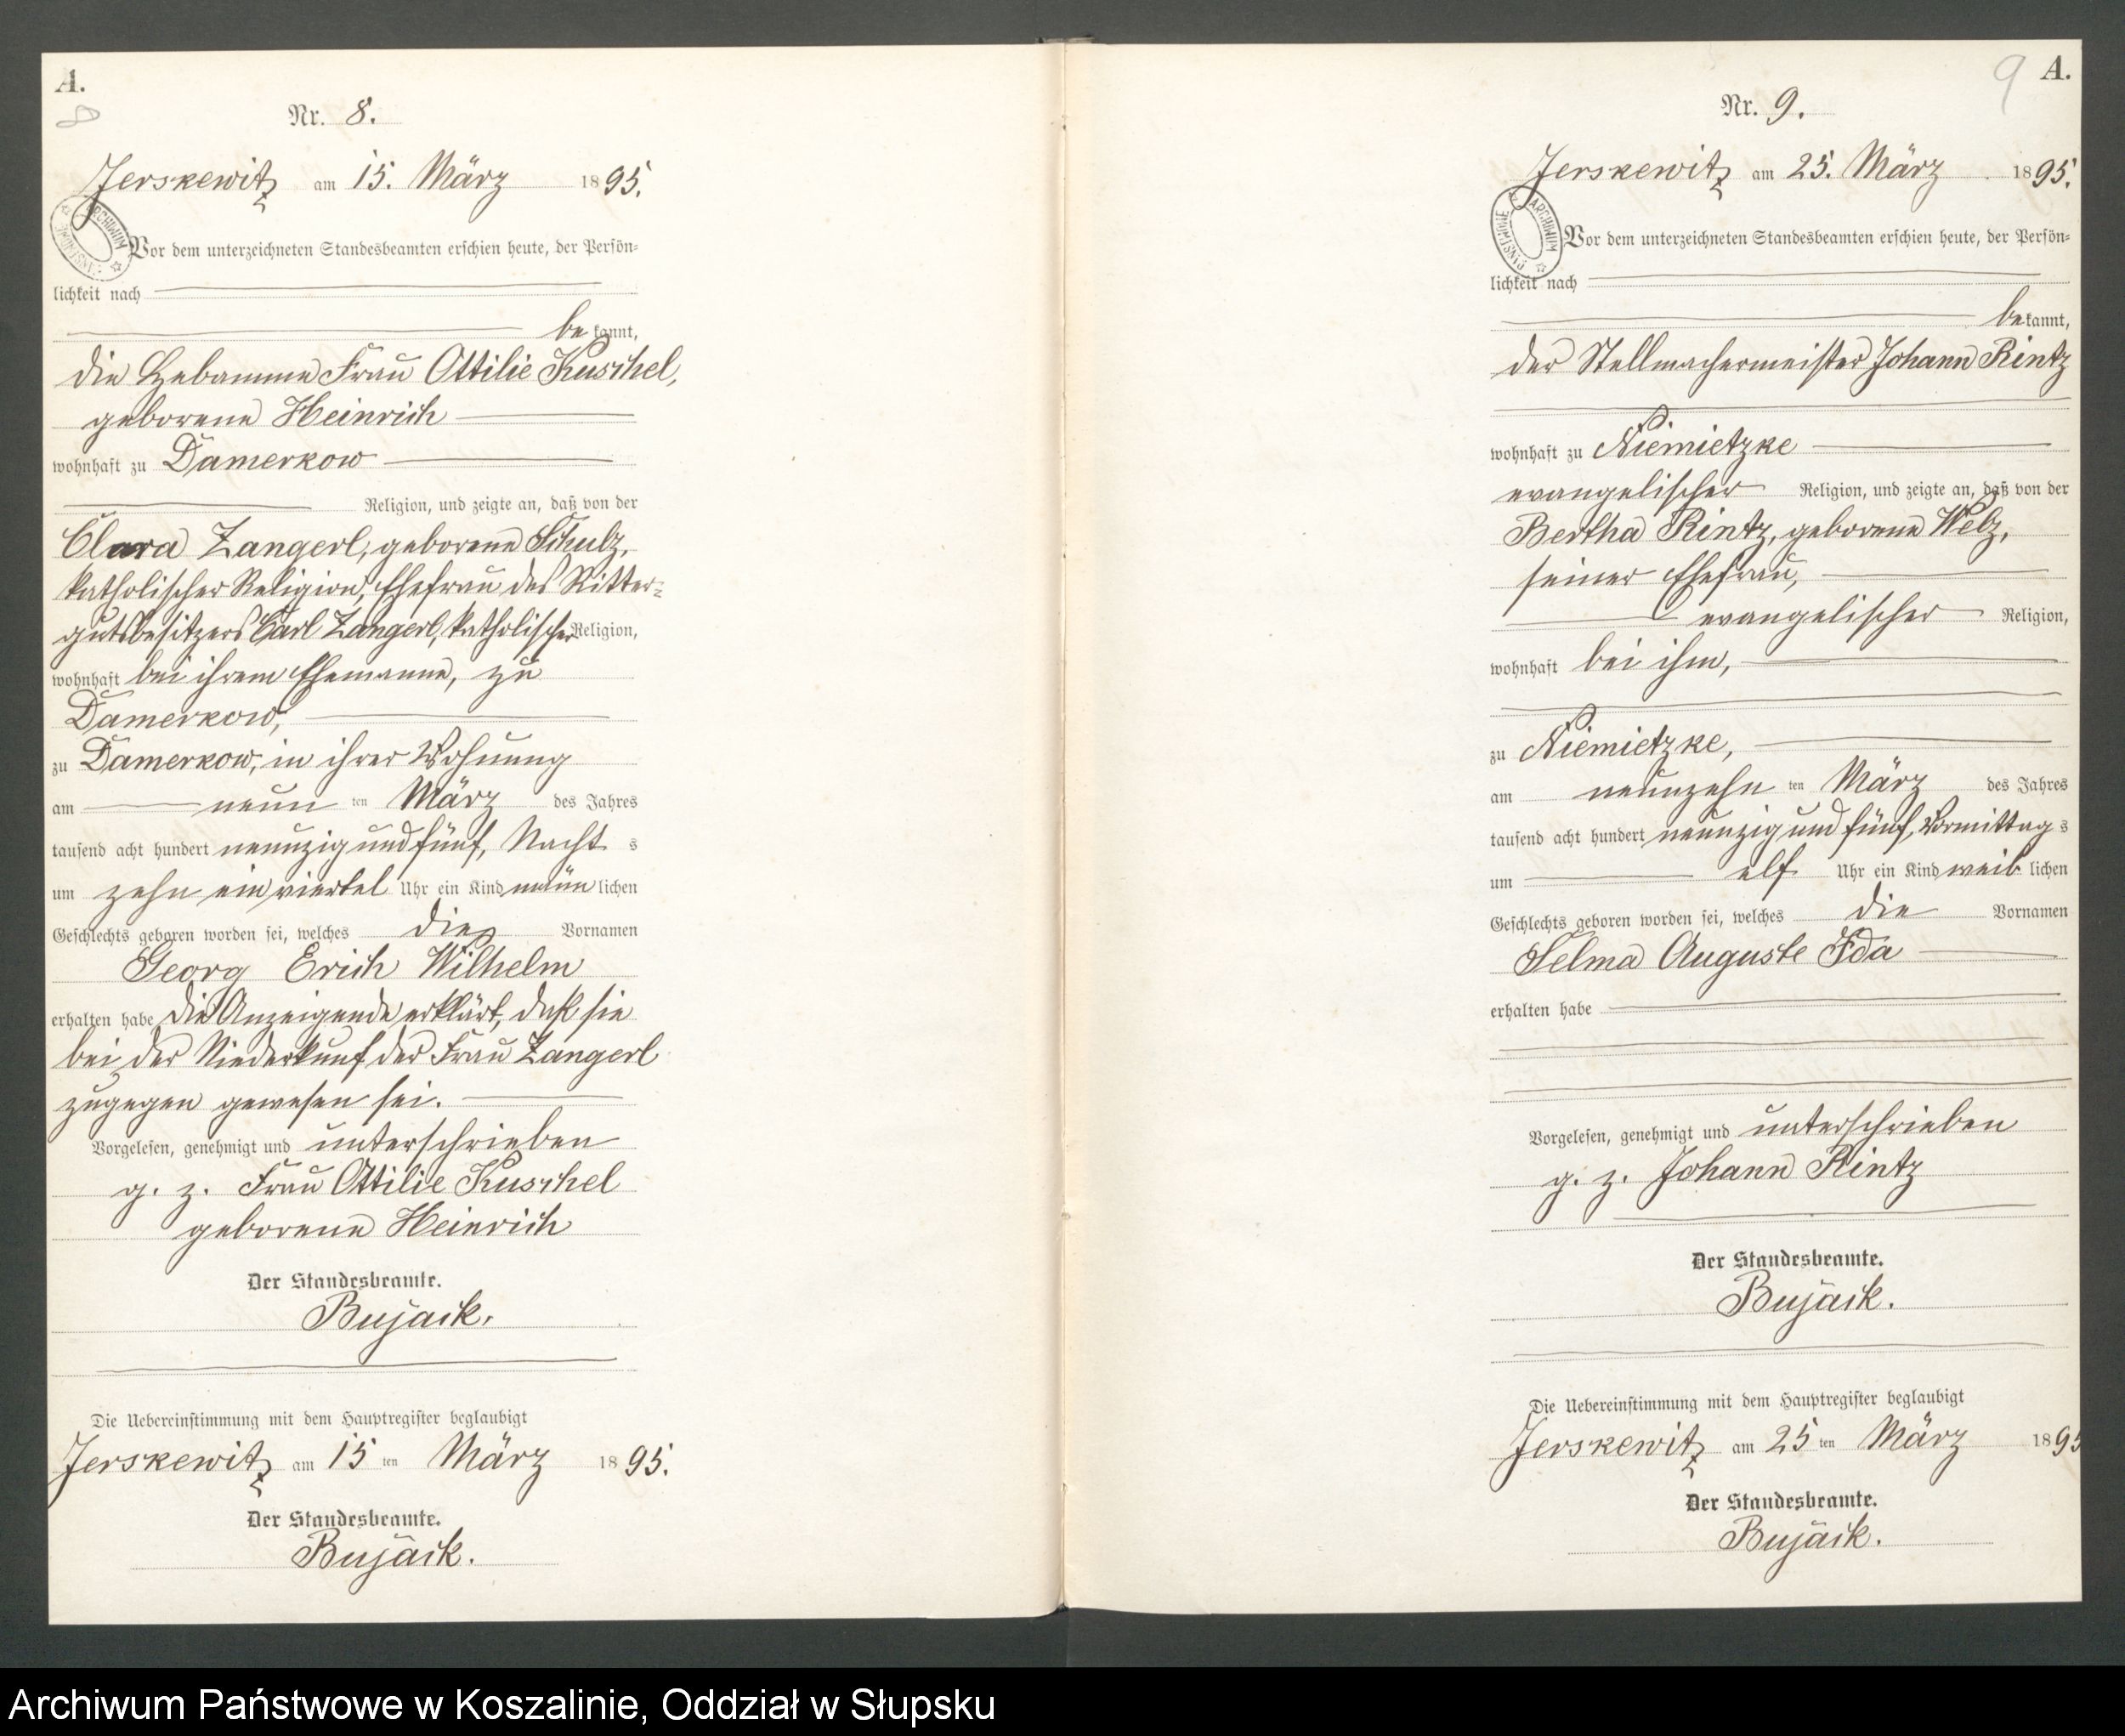 A.
8
Nr. 8.
Jerskewitz am 15. März 1895.
Vor dem unterzeichneten Standesbeamten erschien heute, der Persön-
lichkeit nach
bekannt,
die Hebamme Frau Ottilie Kuschel,
geborene Heinrich
wohnhaft zu Damerkow
Religion, und zeigte an, daß von der
Clara Zangerl, geborene Schulz,
katholischer Religion, Ehefrau des Ritter-
gutsbesitzers Carl Zangerl, katholischer Religion,
wohnhaft bei ihrem Ehemanne, zu
Damerkow,
zu Damerkow, in ihrer Wohnung
am neun ten März des Jahres
tausend acht hundert neunzig und fünf, Nacht s
um zehn ein viertel Uhr ein Kind männlichen
Geschlechts geboren worden sei, welches die Vornamen
Georg Erich Wilhelm
erhalten habe Die Anzeigende erklärt, daß sie
bei der Niederkunf der Frau Zangerl
zugegen gewesen sei.
Vorgelesen, genehmigt und unterschrieben
g. z. Frau Ottilie Kuschel
geborene Heinrich
Der Standesbeamte.
Bujack.
Die Uebereinstimmung mit dem Hauptregister beglaubigt
Jerskewitz am 15 ten März 1895.
Der Standesbeamte.
Bujack.
9 A.
Nr. 9.
Jerskewitz am 25. März 1895.
Vor dem unterzeichneten Standesbeamten erschien heute, der Persön-
lichkeit nach
bekannt,
der Stellmachermeister Johann Rintz
wohnhaft zu Niemietzke
evangelischer Religion, und zeigte an, daß von der
Bertha Rintz, geborene Welz,
seiner Ehefrau,
evangelischer Religion,
wohnhaft bei ihm,
zu Niemietzke,
am neunzehn ten März des Jahres
tausend acht hundert neunzig und fünf, Vormittag s
um elf Uhr ein Kind weiblichen
Geschlechts geboren worden sei, welches die Vornamen
Selma Auguste Ida
erhalten habe
Vorgelesen, genehmigt und unterschrieben
g. z. Johann Rintz
Der Standesbeamte.
Bujack.
Die Uebereinstimmung mit dem Hauptregister beglaubigt
Jerskewitz am 25 ten März 1895
Der Standesbeamte.
Bujack.
Archiwum Państwowe w Koszalinie, Oddział w Słupsku